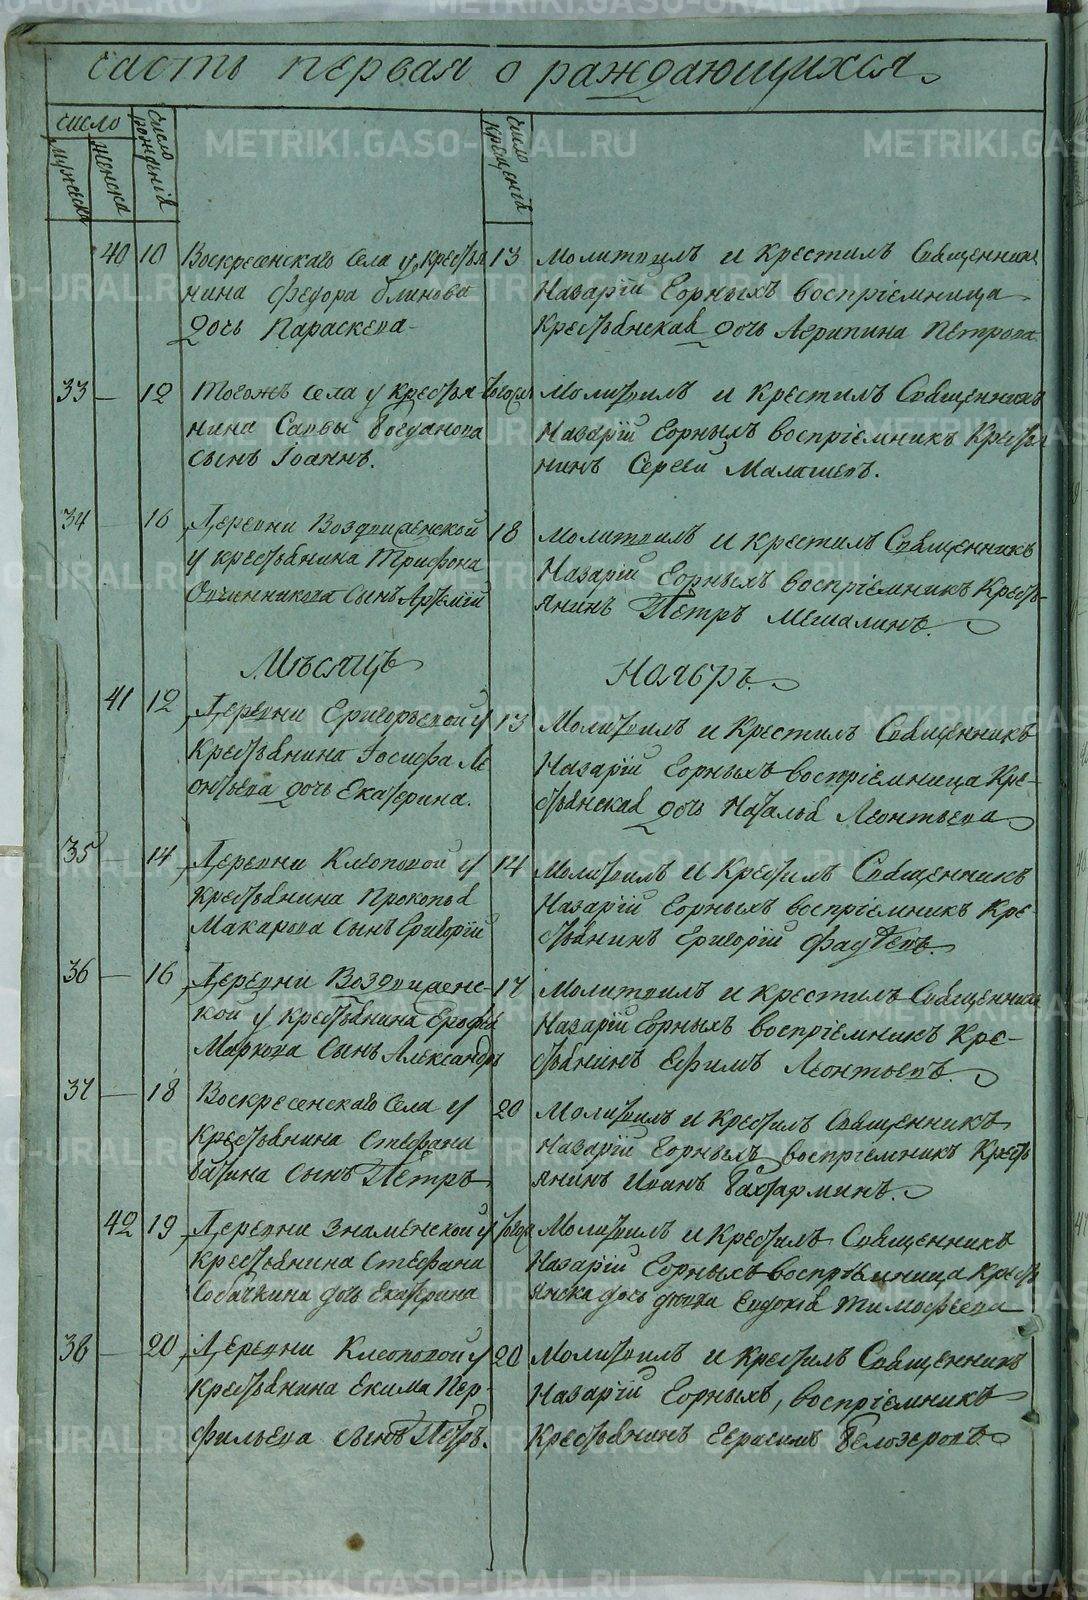 часть первая о раждающихся
число
мужеска
женска
число рожденiя
число крещенiя
40 10 Воскресенскаго Села у кресть
нина Федора Блинова
дочь Параскева
13 Молитвилъ и Крестилъ Священникъ
Назарiй Горныхъ воспрiемница
Крестьянская дочь Агрипина Петрова
33 — 12 Тогожъ Села у Крестья
нина Саввы Богданова
сынъ Iоаннъ.
Молитвилъ и Крестилъ Священникъ
Назарiй Горныхъ воспрiемникъ Крестья
нинъ Сергей Малышевъ.
34 — 16 Деревни Воздвиженской
у крестьянина Трифона
Овчинникова Сынъ Артемiй
18 Молитвилъ и крестилъ Священникъ
Назарiй Горныхъ воспрiемникъ Кресть-
янинъ Пётръ Мешалинъ.
Мѣсяцъ Ноябрь.
41 12 Деревни Григорьевской у
Крестьянина Iосифа Ле
онтьева дочь Екатерина.
13 Молитвилъ и Крестилъ Священникъ
Назарiй Горныхъ воспрiемница Кре-
стьянская дочь Наталья Леонтьева
35 — 14 Деревни Клеоповой у
Крестьянина Прокопья
Макарова Сынъ Григорiй
14 Молитвилъ и Крестилъ Священникъ
Назарiй Горныхъ воспрiемникъ Кре-
стьянинъ Григорiй
36 — 16 Деревни Воздвижен-
кой у крестьянина Ерофея
Маркова Сынъ Александръ
17 Молитвилъ и крестилъ Священникъ
Назарiй Горныхъ воспрiемникъ Кре-
стьянинъ Ефимъ Леонтьевъ.
37 — 18 Воскресенскаго Села у
Крестьянина Стефана
Батина Сынъ Пётръ
20 Молитвилъ и Крестилъ Священникъ
Назарiй Горныхъ воспрiемникъ Кресть
янинъ Иванъ Бахтарминъ.
42 19 Деревни Знаменской у
Крестьянина Стефана
Собачкина дочь Екатерина
Молитвилъ и Крестилъ Священникъ
Назарiй Горныхъ воспрiемница Кресть
янска дочь Евдокiя Тимофеева
38 — 20 Деревни Клеоповой у
Крестьянина Екима Пер-
фильева сынъ Пётръ.
20 Молитвилъ и Крестилъ Священникъ
Назарiй Горныхъ, воспрiемникъ
Крестьянинъ Герасимъ Белозеровъ
METRIKI.GASO-URAL.RU